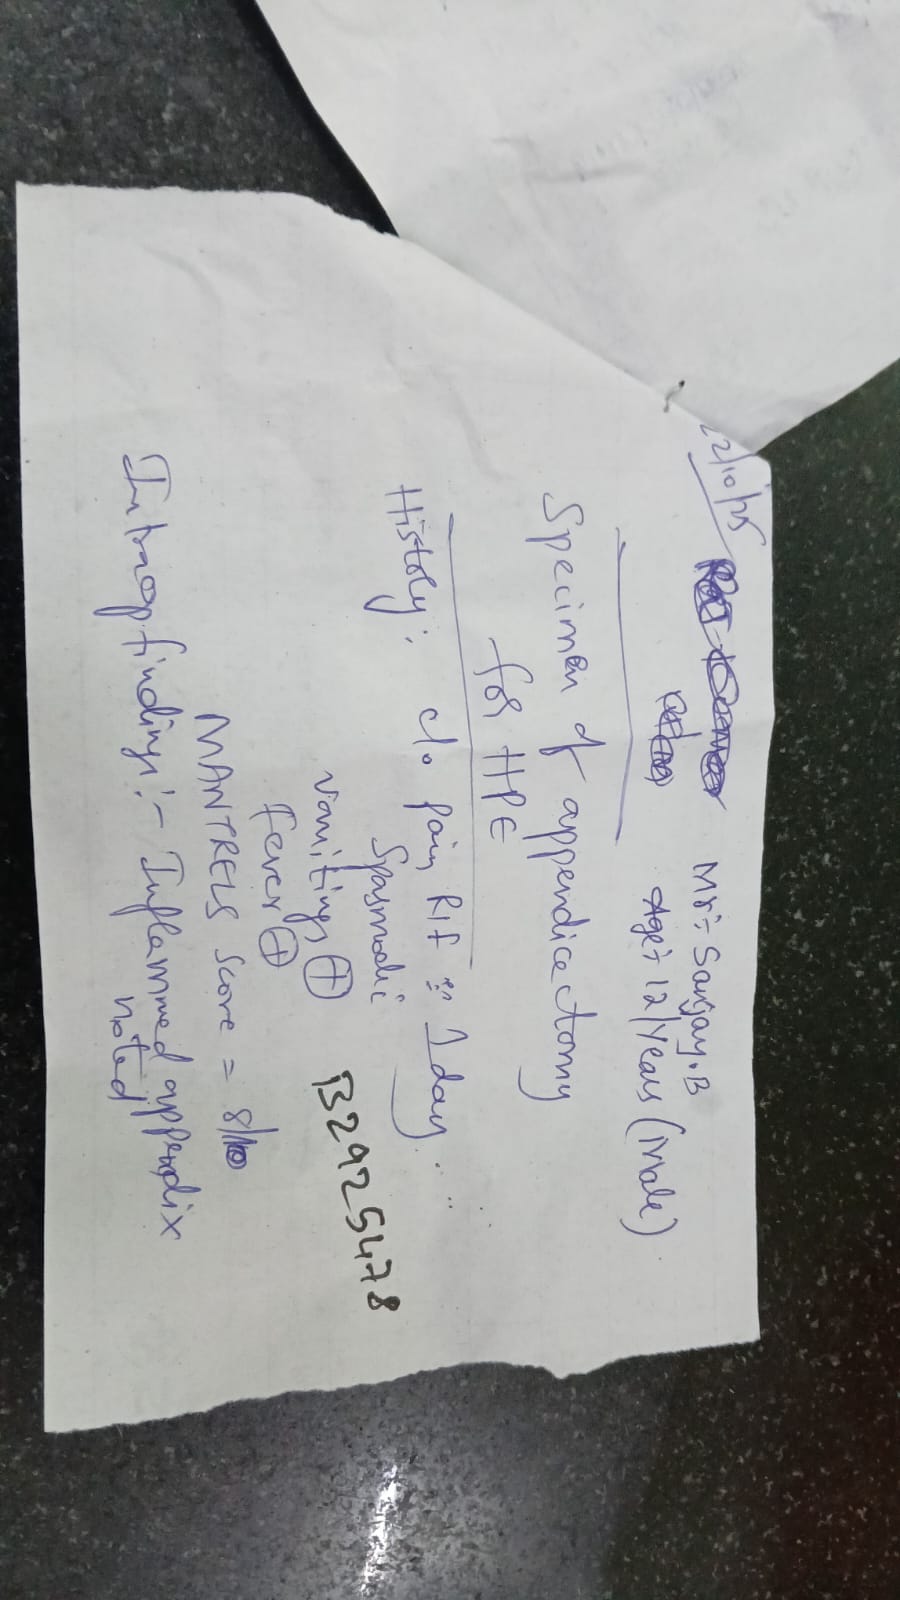 22/10/25
Mr:- Sanjay.B
Age:- 12/Years (Male)
Specimen of appendicectomy
for HPE
History: c/o pain RIF :: 1day
Spasmodic
vomitings (+)
fever (+)
B2925478
MANTRELS Score = 8/10
Intraop findings:- Inflammed appendix
noted